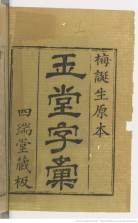 梅誕生原本
玉堂字彙
四瑞堂藏板